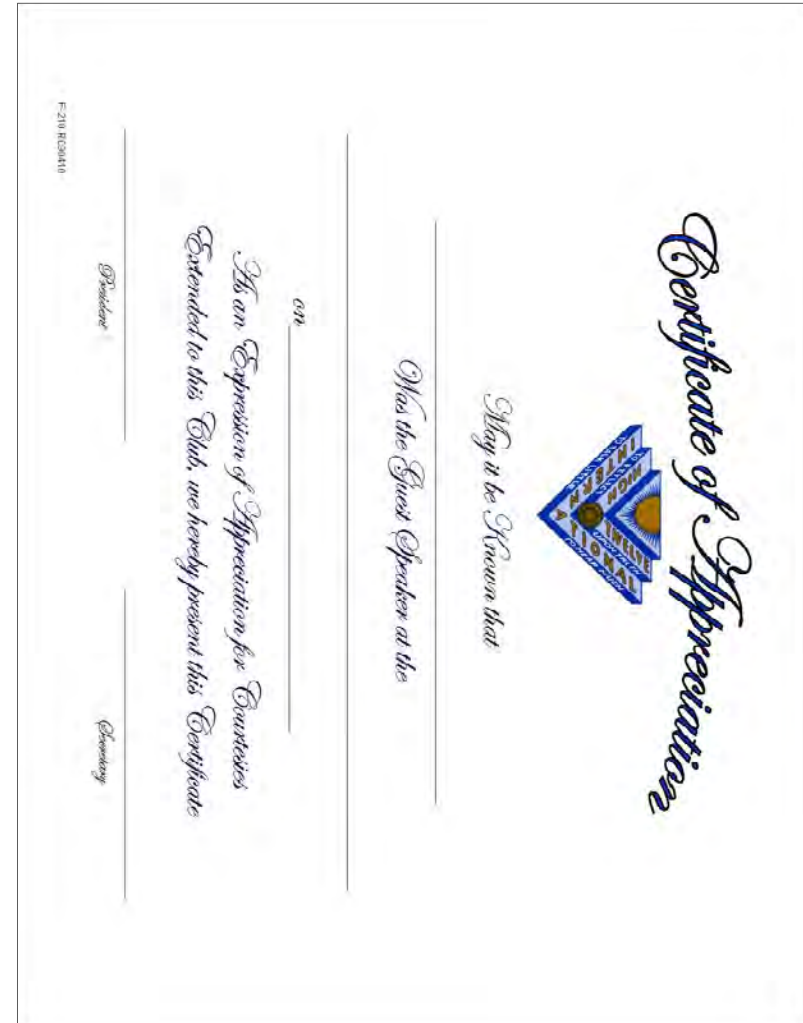 Certificate of Appreciation
HIGH TWELVE
INTERNATIONAL
May it be Known that
Was the Guest Speaker at the
on
As an Expression of Appreciation for Courtesies
Extended to this Club, we hereby present this Certificate
President
Secretary